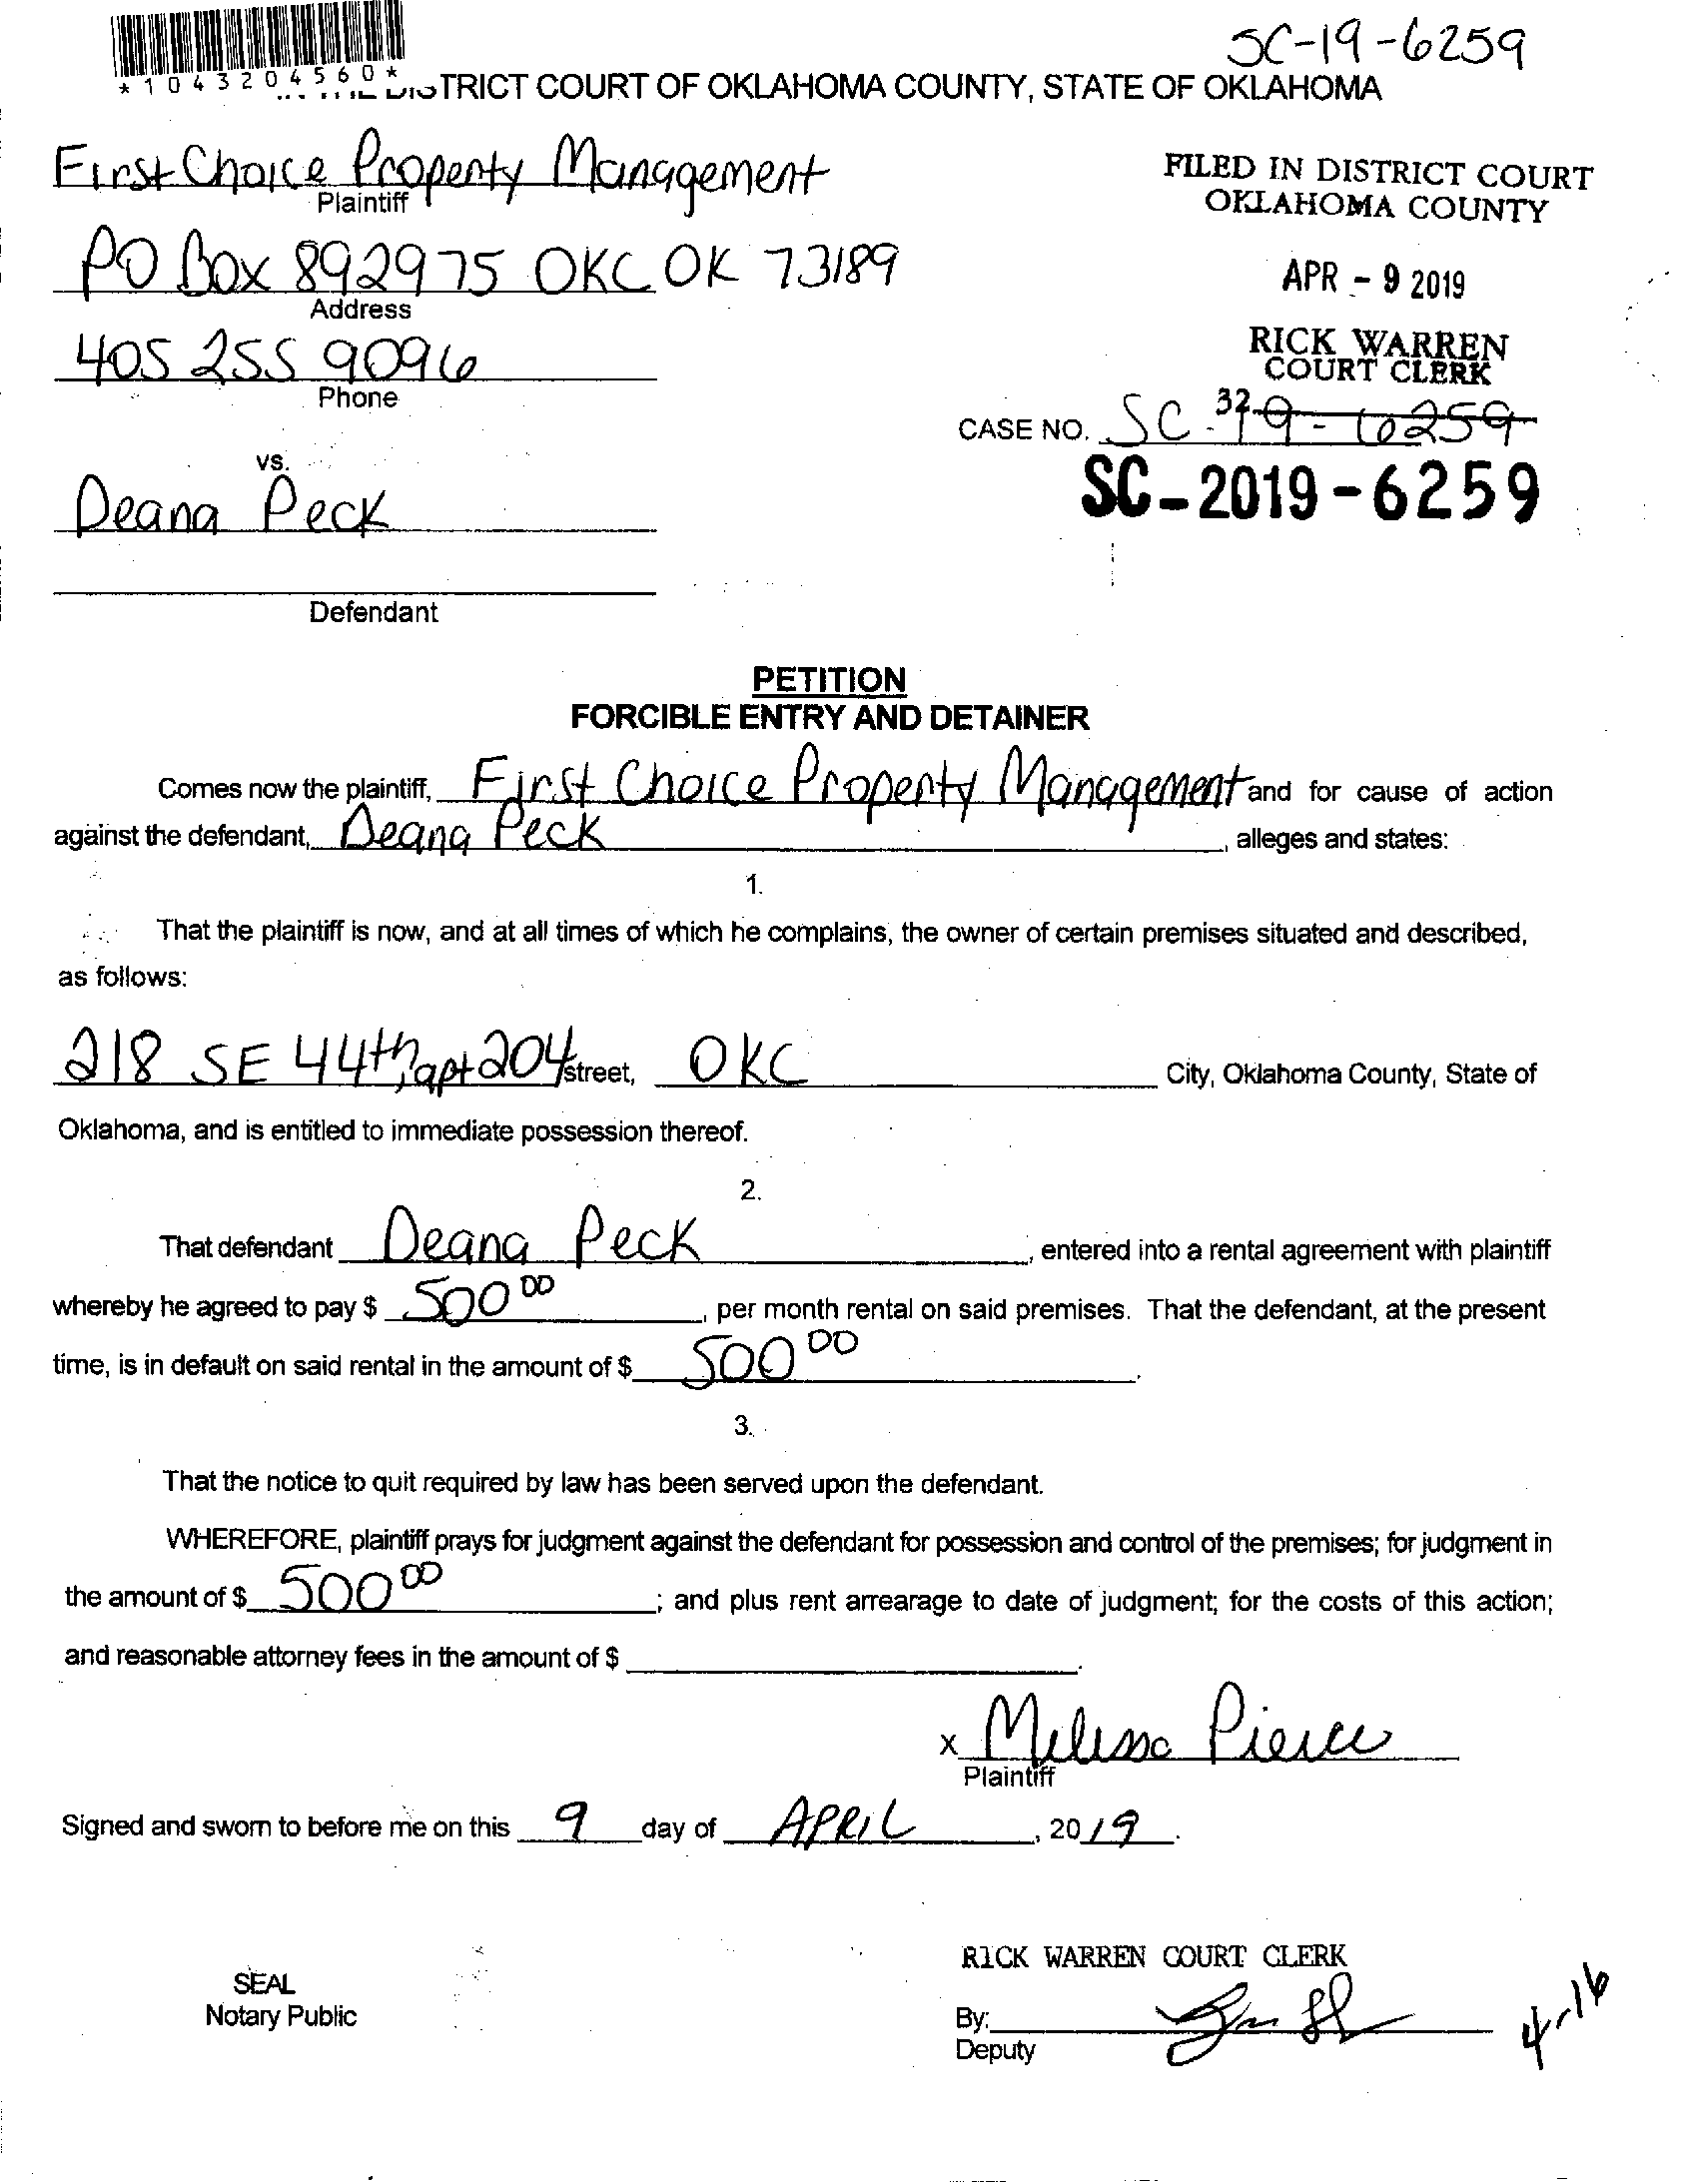 SC-19-6259
*1043204560*
DISTRICT COURT OF OKLAHOMA COUNTY, STATE OF OKLAHOMA
First Choice Property Management
Plaintiff
FILED IN DISTRICT COURT
OKLAHOMA COUNTY
PO Box 892975 OKC OK 73189
Address
APR - 9 2019
405 255 9096
Phone
RICK WARREN
COURT CLERK
32
CASE NO. SC-19-6259
SC-2019-6259
vs.
Deana Peck
Defendant
PETITION
FORCIBLE ENTRY AND DETAINER
Comes now the plaintiff, First Choice Property Management and for cause of action
against the defendant, Deana Peck, alleges and states:
1.
That the plaintiff is now, and at all times of which he complains, the owner of certain premises situated and described,
as follows:
218 SE 44th, apt 204 street, OKC City, Oklahoma County, State of
Oklahoma, and is entitled to immediate possession thereof.
2.
That defendant Deana Peck, entered into a rental agreement with plaintiff
whereby he agreed to pay $ 500 00, per month rental on said premises. That the defendant, at the present
time, is in default on said rental in the amount of $ 500 00.
3.
That the notice to quit required by law has been served upon the defendant.
WHEREFORE, plaintiff prays for judgment against the defendant for possession and control of the premises; for judgment in
the amount of $ 500 00; and plus rent arrearage to date of judgment; for the costs of this action;
and reasonable attorney fees in the amount of $ .
x Melissa Pierce
Plaintiff
Signed and sworn to before me on this 9 day of APRIL, 2019.
RICK WARREN COURT CLERK
SEAL
Notary Public
By:
Deputy
4-16